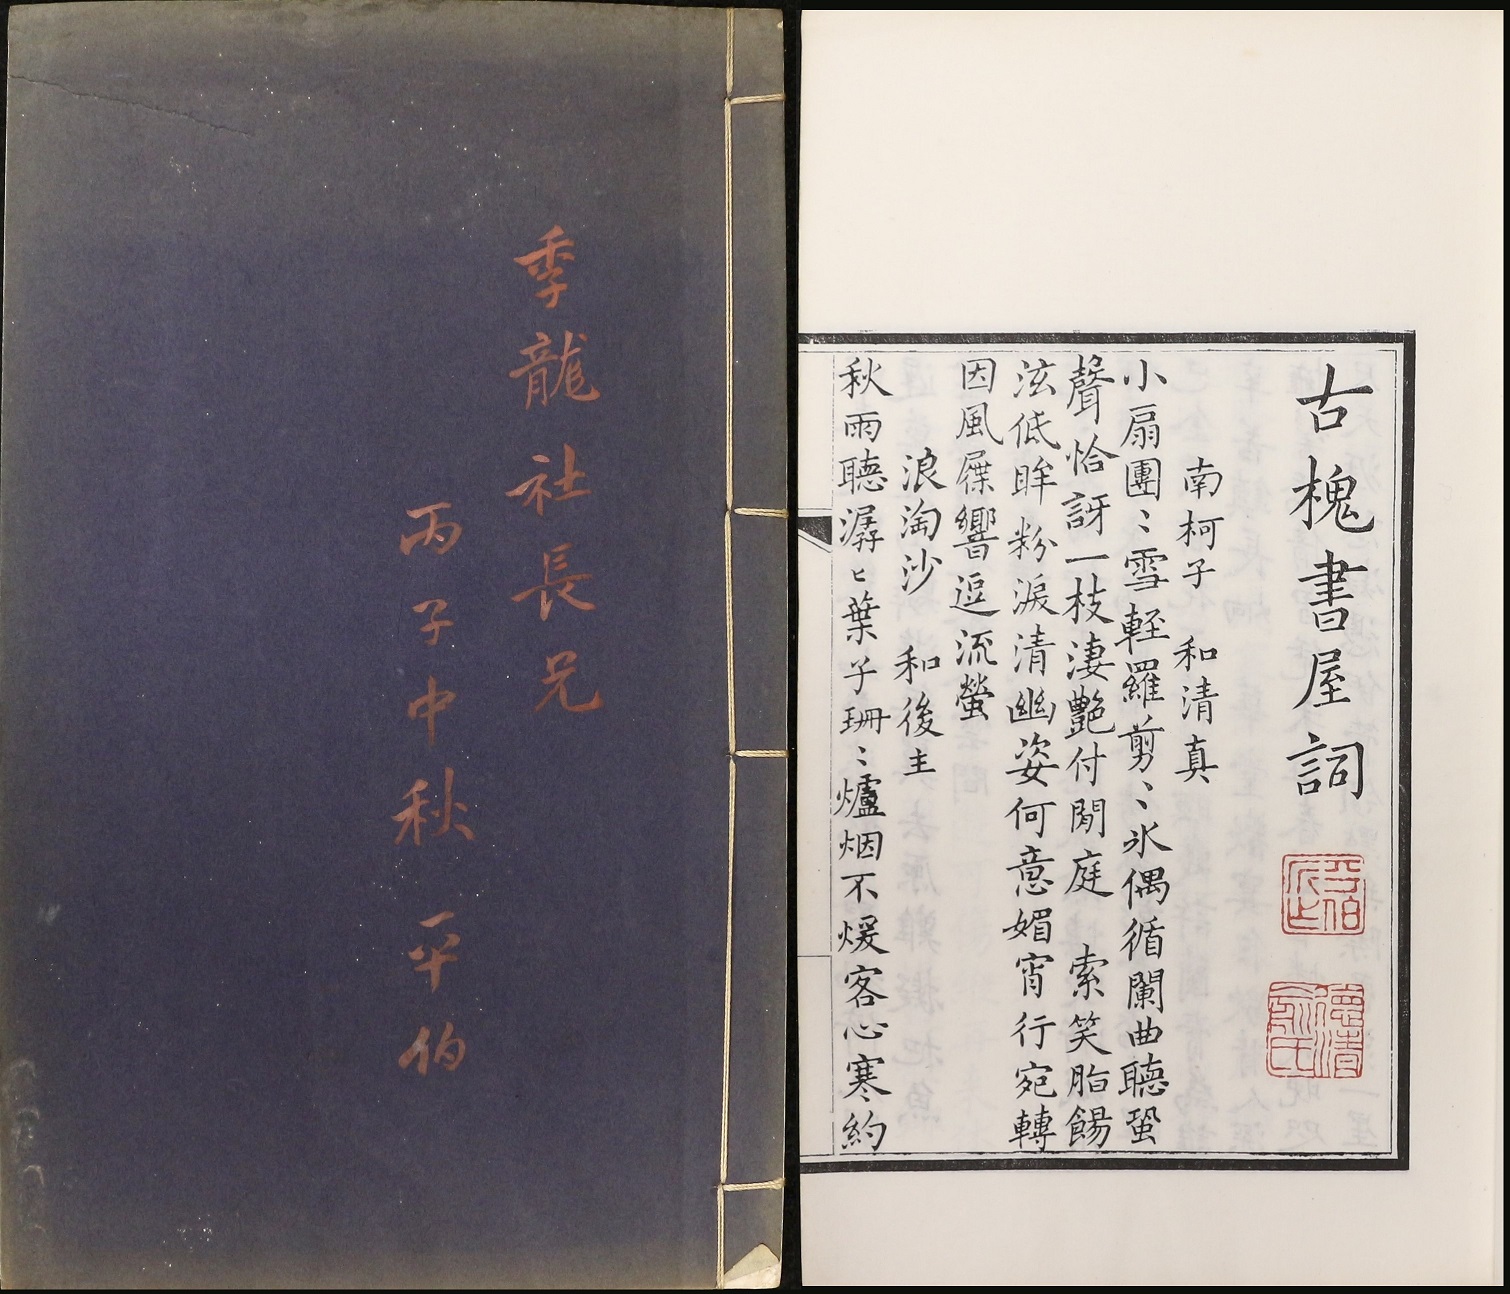 季龍社長兄
丙子中秋平伯
古槐書屋詞
平伯
德清俞氏
南柯子 和清真
小扇團〻雪輕羅剪〻冰偶循闌曲聽蛩
聲恰訝一枝淒艷付閒庭 索笑脂餳
泫低眸粉淚清幽姿何意媚宵行宛轉
因風屧響逗流螢
浪淘沙 和後主
秋雨聽潺〻葉子珊〻爐烟不煖客心寒約